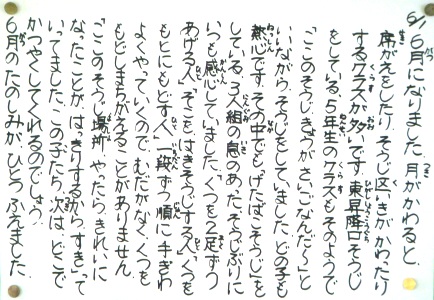 6/1 6月になりました。月がかわると、
席がえをしたり、そうじ区いきがかわたり
するクラスが多いです。東昇降口そうじ
をしている、5年生のクラスもそのようで
「ここのそうじきょうがさいごなんだ～」と
いいながら、そうじをしていました。どの子も
熱心です。その中でも「げたばこそうじ」を
している、3人組の息のあった、そうじぶりに
いつも感心していました。「くつを2足ずつ
あげる人」「そこを、はきそうじする人」「くつを
もとにもどす人」一段ずつ順に、手ぎわ
よくやっていくので、むだがなく、くつを
もどしまちがえることがありません。
「ここのそうじ場所、やったら、きれいに
なったことが、はっきりするから、すき」って
いってました。この子たち、次は、どこで
かつやくしてくれるのでしょう。
6月のたのしみが、ひとつふえました。